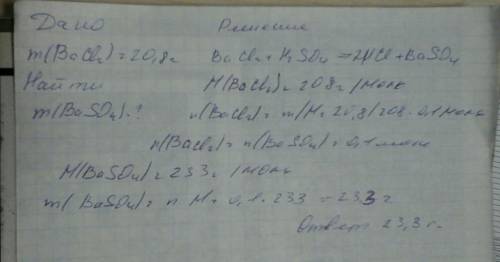 Дано Решение
m(BaCl2)=20,8г BaCl2+H2SO4=2HCl+BaSO4
Найти M(BaCl2)=208г/моль
m(BaSO4)-? n(BaCl2)=m/M=20,8/208=0,1моль
n(BaCl2)=n(BaSO4)=0,1моль
M(BaSO4)=233г/моль
m(BaSO4)=n·M=0,1·233=23,3г
Ответ 23,3г.